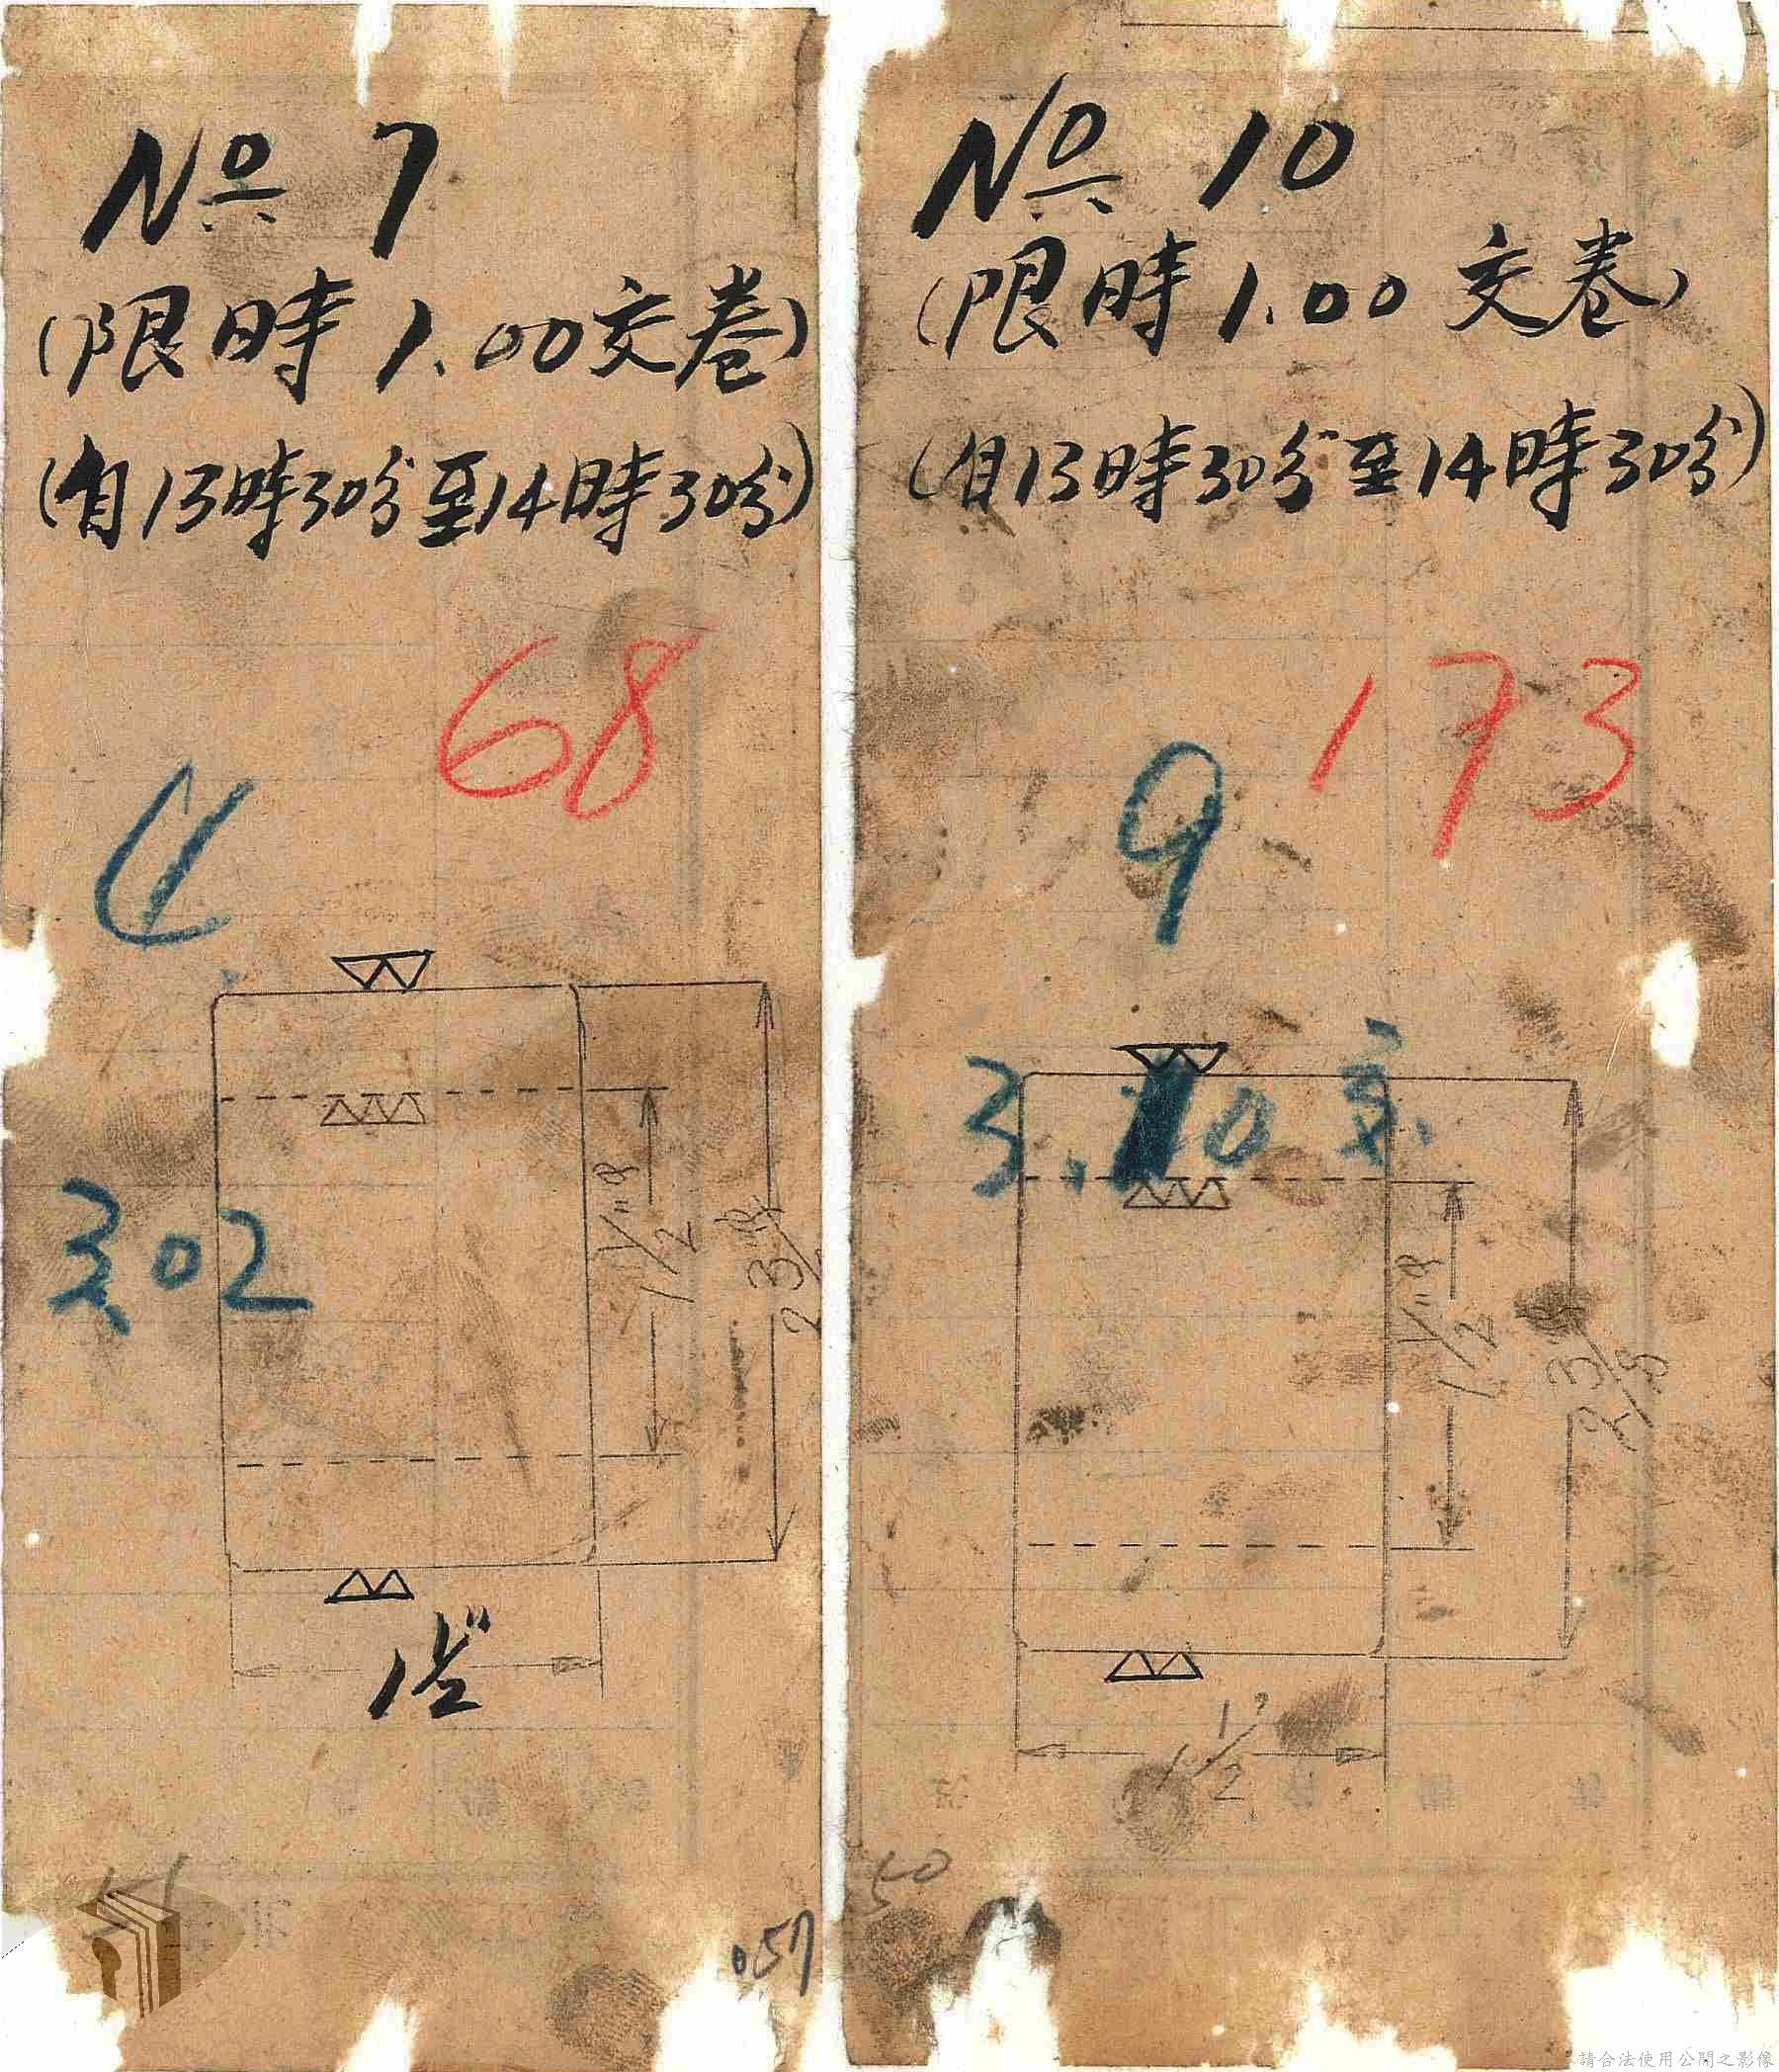 No 7
(限時 1.00交卷)
(自13時30分至14時30分)
68
3.02
1 1/2"
1 1/2"
51
057
No 10
(限時 1.00 交卷)
(自13時30分至14時30分)
173
9
1 1/2"
1 1/2"
50
請合法使用公開之影像